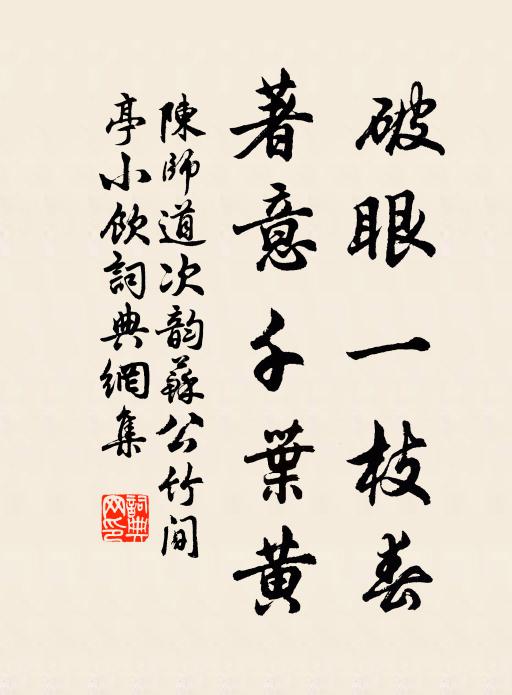 破眼一枝春
著意千葉黃
陳師道次韵蘇公竹间
亭小飲詞典網集
詞典
网印